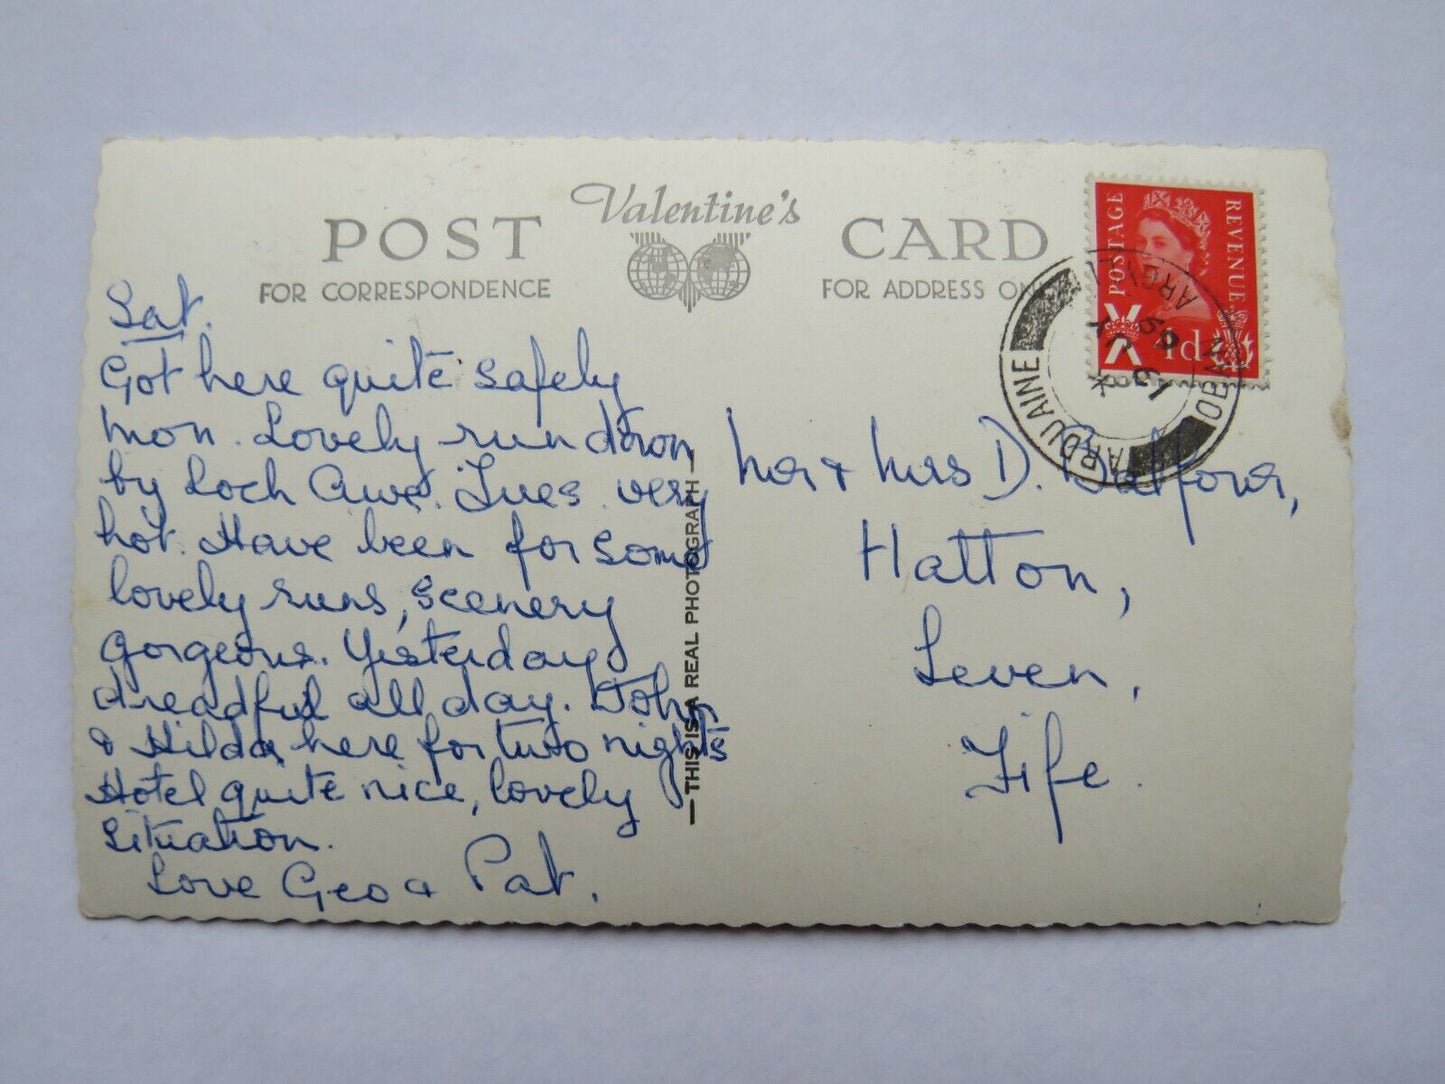 Valentine's
POST CARD
FOR CORRESPONDENCE
FOR ADDRESS ON
Sat.
Got here quite safely
Mon. Lovely run down
by Loch Awe. Tues very
hot. Have been for some
lovely runs, scenery
gorgeous. Yesterday
dreadful all day. John
& Hilda here for two nights
Hotel quite nice, lovely
situation.
Love Geo & Pat.
—THIS IS A REAL PHOTOGRAPH—
Mr & Mrs D. Balfour,
Hatton,
Leven,
Fife.
POSTAGE
REVENUE
4d
ARDUAINE
OBAN
ARGYLL